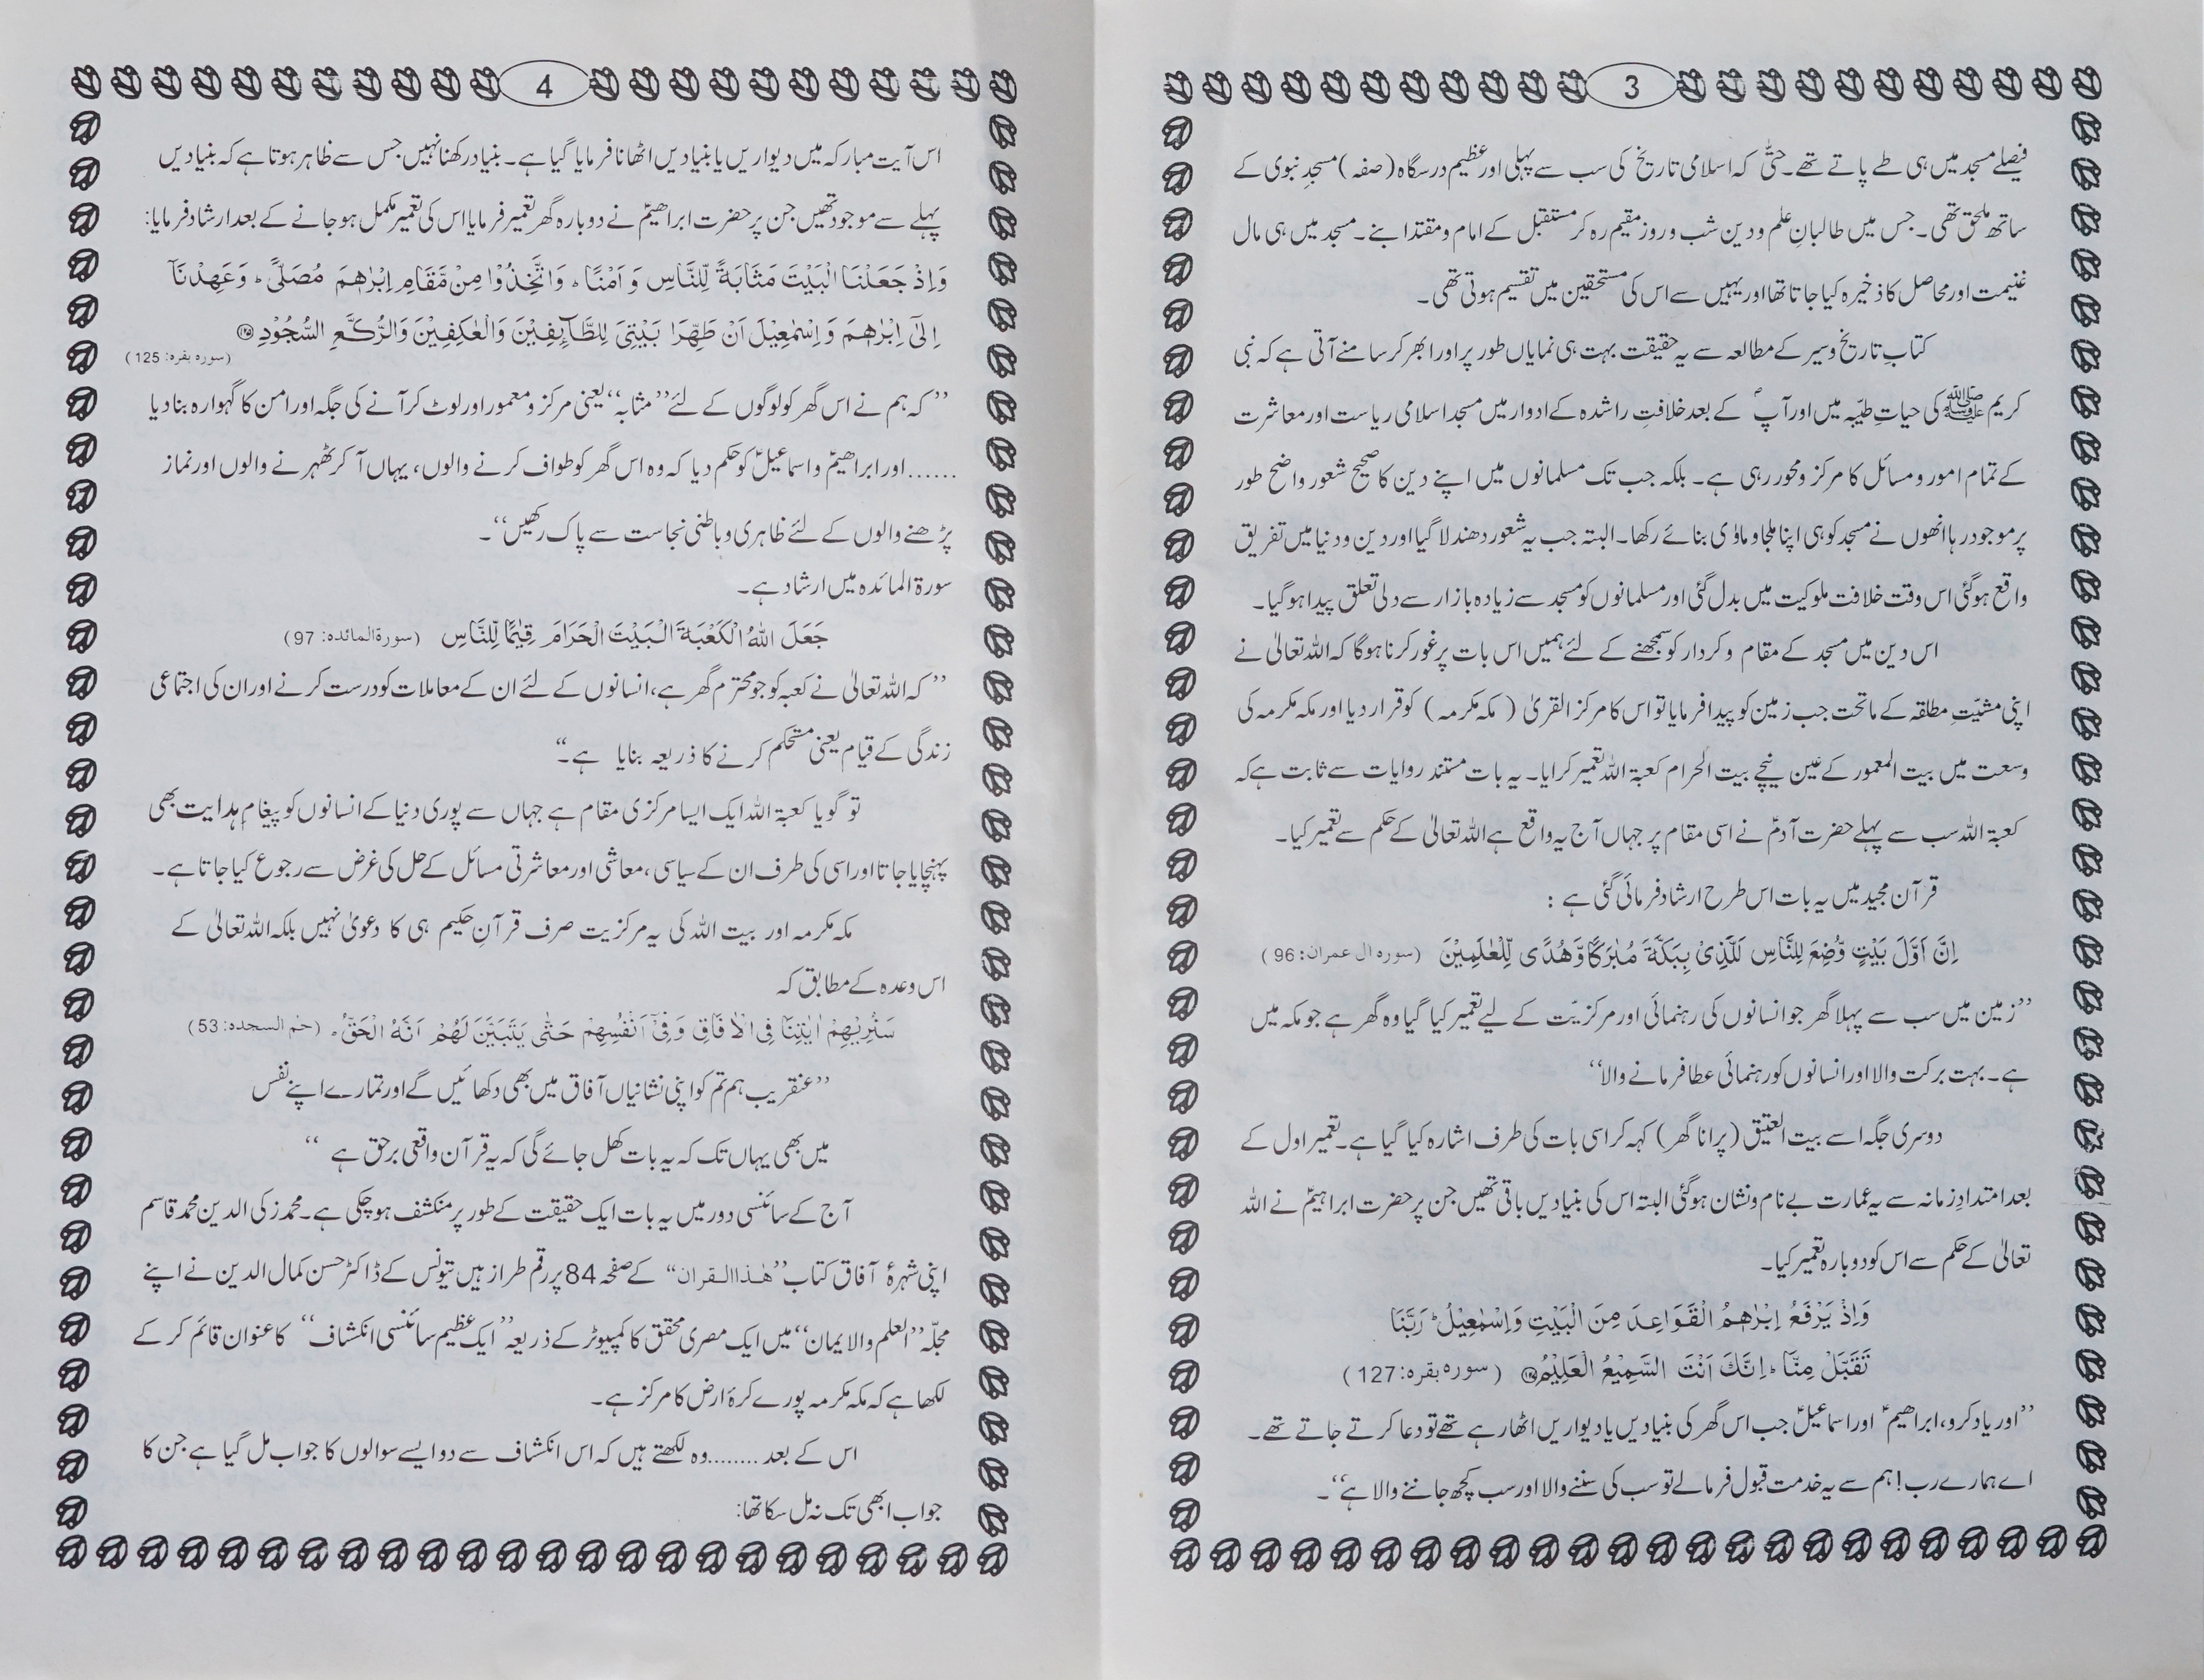 3
فیصلے مسجد میں ہی طے پاتے تھے۔ حتیّٰ کہ اسلامی تاریخ کی سب سے پہلی اور عظیم درسگاہ (صفہ) مسجدِ نبوی کے
ساتھ ملحق تھی۔ جس میں طالبانِ علم و دین شب و روز مقیم رہ کر مستقبل کے امام و مقتدا بنے۔ مسجد میں ہی مال
غنیمت اور محاصل کا ذخیرہ کیا جاتا تھا اور یہیں سے اس کی مستحقین میں تقسیم ہوتی تھی۔
کتابِ تاریخ و سیر کے مطالعہ سے یہ حقیقت بہت ہی نمایاں طور پر اور ابھر کر سامنے آتی ہے کہ نبی
کریم ﷺ کی حیاتِ طیّبہ میں اور آپؐ کے بعد خلافتِ راشدہ کے ادوار میں مسجد اسلامی ریاست اور معاشرت
کے تمام امور و مسائل کا مرکز و محور رہی ہے۔ بلکہ جب تک مسلمانوں میں اپنے دین کا صحیح شعور واضح طور
پر موجود رہا انھوں نے مسجد کو ہی اپنا ملجا و ماوٰی بنائے رکھا۔ البتہ جب یہ شعور دھندلا گیا اور دین و دنیا میں تفریق
واقع ہوگئی اس وقت خلافت ملوکیت میں بدل گئی اور مسلمانوں کو مسجد سے زیادہ بازار سے دلی تعلق پیدا ہوگیا۔
اس دین میں مسجد کے مقام و کردار کو سمجھنے کے لئے ہمیں اس بات پر غور کرنا ہوگا کہ اللہ تعالیٰ نے
اپنی مشیّتِ مطلقہ کے ماتحت جب زمین کو پیدا فرمایا تو اس کا مرکز القریٰ (مکہ مکرمہ) کو قرار دیا اور مکہ مکرمہ کی
وسعت میں بیت المعمور کے عین نیچے بیت الحرام کعبۃ اللہ تعمیر کرایا۔ یہ بات مستند روایات سے ثابت ہے کہ
کعبۃ اللہ سب سے پہلے حضرت آدمؑ نے اسی مقام پر جہاں آج یہ واقع ہے اللہ تعالیٰ کے حکم سے تعمیر کیا۔
قرآن مجید میں یہ بات اس طرح ارشاد فرمائی گئی ہے :
اِنَّ اَوَّلَ بَیْتٍ وُّضِعَ لِلنَّاسِ لَلَّذِیْ بِبَکَّۃَ مُبٰرَکًا وَّھُدًی لِّلْعٰلَمِیْنَ (سورہ اٰل عمران: 96)
’’زمین میں سب سے پہلا گھر جو انسانوں کی رہنمائی اور مرکزیّت کے لیے تعمیر کیا گیا وہ گھر ہے جو مکہ میں
ہے۔ بہت برکت والا اور انسانوں کو رہنمائی عطا فرمانے والا‘‘
دوسری جگہ اسے بیت العتیق (پرانا گھر) کہہ کر اسی بات کی طرف اشارہ کیا گیا ہے۔ تعمیر اول کے
بعد امتدادِ زمانہ سے یہ عمارت بے نام و نشان ہوگئی البتہ اس کی بنیادیں باقی تھیں جن پر حضرت ابراہیمؑ نے اللہ
تعالیٰ کے حکم سے اس کو دوبارہ تعمیر کیا۔
وَاِذْ یَرْفَعُ اِبْرٰھِمُ الْقَوَاعِدَ مِنَ الْبَیْتِ وَاِسْمٰعِیْلُ ؕ رَبَّنَا
تَقَبَّلْ مِنَّا ؕ اِنَّکَ اَنْتَ السَّمِیْعُ الْعَلِیْمُ ﴿۱۲۷﴾ (سورہ بقرہ: 127)
’’اور یاد کرو، ابراھیمؑ اور اسماعیلؑ جب اس گھر کی بنیادیں یا دیواریں اٹھا رہے تھے تو دعا کرتے جاتے تھے۔
اے ہمارے رب! ہم سے یہ خدمت قبول فرمالے تو سب کی سننے والا اور سب کچھ جاننے والا ہے‘‘۔
4
اس آیت مبارکہ میں دیواریں یا بنیادیں اٹھانا فرمایا گیا ہے۔ بنیاد رکھنا نہیں جس سے ظاہر ہوتا ہے کہ بنیادیں
پہلے سے موجود تھیں جن پر حضرت ابراھیمؑ نے دوبارہ گھر تعمیر فرمایا اس کی تعمیر مکمل ہوجانے کے بعد ارشاد فرمایا:
وَاِذْ جَعَلْنَا الْبَیْتَ مَثَابَۃً لِّلنَّاسِ وَ اَمْنًا ؕ وَاتَّخِذُوْا مِنْ مَّقَامِ اِبْرٰھٖمَ مُصَلًّی ؕ وَعَھِدْنَآ
اِلٰٓی اِبْرٰھٖمَ وَاِسْمٰعِیْلَ اَنْ طَھِّرَا بَیْتِیَ لِلطَّآئِفِیْنَ وَالْعٰکِفِیْنَ وَالرُّکَّعِ السُّجُوْدِ ﴿۱۲۵﴾
(سورہ بقرہ: 125)
’’کہ ہم نے اس گھر کو لوگوں کے لئے ’’مثابہ‘‘ یعنی مرکز و معمور اور لوٹ کر آنے کی جگہ اور امن کا گہوارہ بنا دیا
......اور ابراھیمؑ و اسماعیلؑ کو حکم دیا کہ وہ اس گھر کو طواف کرنے والوں، یہاں آ کر ٹھہرنے والوں اور نماز
پڑھنے والوں کے لئے ظاہری و باطنی نجاست سے پاک رکھیں‘‘۔
سورۃ المائدہ میں ارشاد ہے۔
جَعَلَ اللّٰہُ الْکَعْبَۃَ الْبَیْتَ الْحَرَامَ قِیٰمًا لِّلنَّاسِ (سورۃالمائدہ: 97)
’’کہ اللہ تعالیٰ نے کعبہ کو جو محترم گھر ہے، انسانوں کے لئے ان کے معاملات کو درست کرنے اور ان کی اجتماعی
زندگی کے قیام یعنی مستحکم کرنے کا ذریعہ بنایا ہے۔‘‘
تو گویا کعبۃ اللہ ایک ایسا مرکزی مقام ہے جہاں سے پوری دنیا کے انسانوں کو پیغامِ ہدایت بھی
پہنچایا جاتا اور اسی کی طرف ان کے سیاسی، معاشی اور معاشرتی مسائل کے حل کی غرض سے رجوع کیا جاتا ہے۔
مکہ مکرمہ اور بیت اللہ کی یہ مرکزیت صرف قرآنِ حکیم ہی کا دعویٰ نہیں بلکہ اللہ تعالیٰ کے
اس وعدہ کے مطابق کہ
سَنُرِیْھِمْ اٰیٰتِنَا فِی الْاٰفَاقِ وَفِیْٓ اَنْفُسِھِمْ حَتّٰی یَتَبَیَّنَ لَھُمْ اَنَّہُ الْحَقُّ ؕ (حٰم السجدہ: 53)
’’عنقریب ہم تم کو اپنی نشانیاں آفاق میں بھی دکھائیں گے اور تمارے اپنے نفس
میں بھی یہاں تک کہ یہ بات کھل جائے گی کہ یہ قرآن واقعی برحق ہے ‘‘
آج کے سائنسی دور میں یہ بات ایک حقیقت کے طور پر منکشف ہوچکی ہے۔ محمد زکی الدین محمد قاسم
اپنی شہرۂ آفاق کتاب ’’ھٰذا القران‘‘ کے صفحہ 84 پر رقم طراز ہیں تیونس کے ڈاکٹر حسن کمال الدین نے اپنے
مجلّہ ’’العلم والایمان‘‘ میں ایک مصری محقق کا کمپیوٹر کے ذریعہ ’’ایک عظیم سائنسی انکشاف‘‘ کا عنوان قائم کر کے
لکھا ہے کہ مکہ مکرمہ پورے کرۂ ارض کا مرکز ہے۔
اس کے بعد ........وہ لکھتے ہیں کہ اس انکشاف سے دو ایسے سوالوں کا جواب مل گیا ہے جن کا
جواب ابھی تک نہ مل سکا تھا: